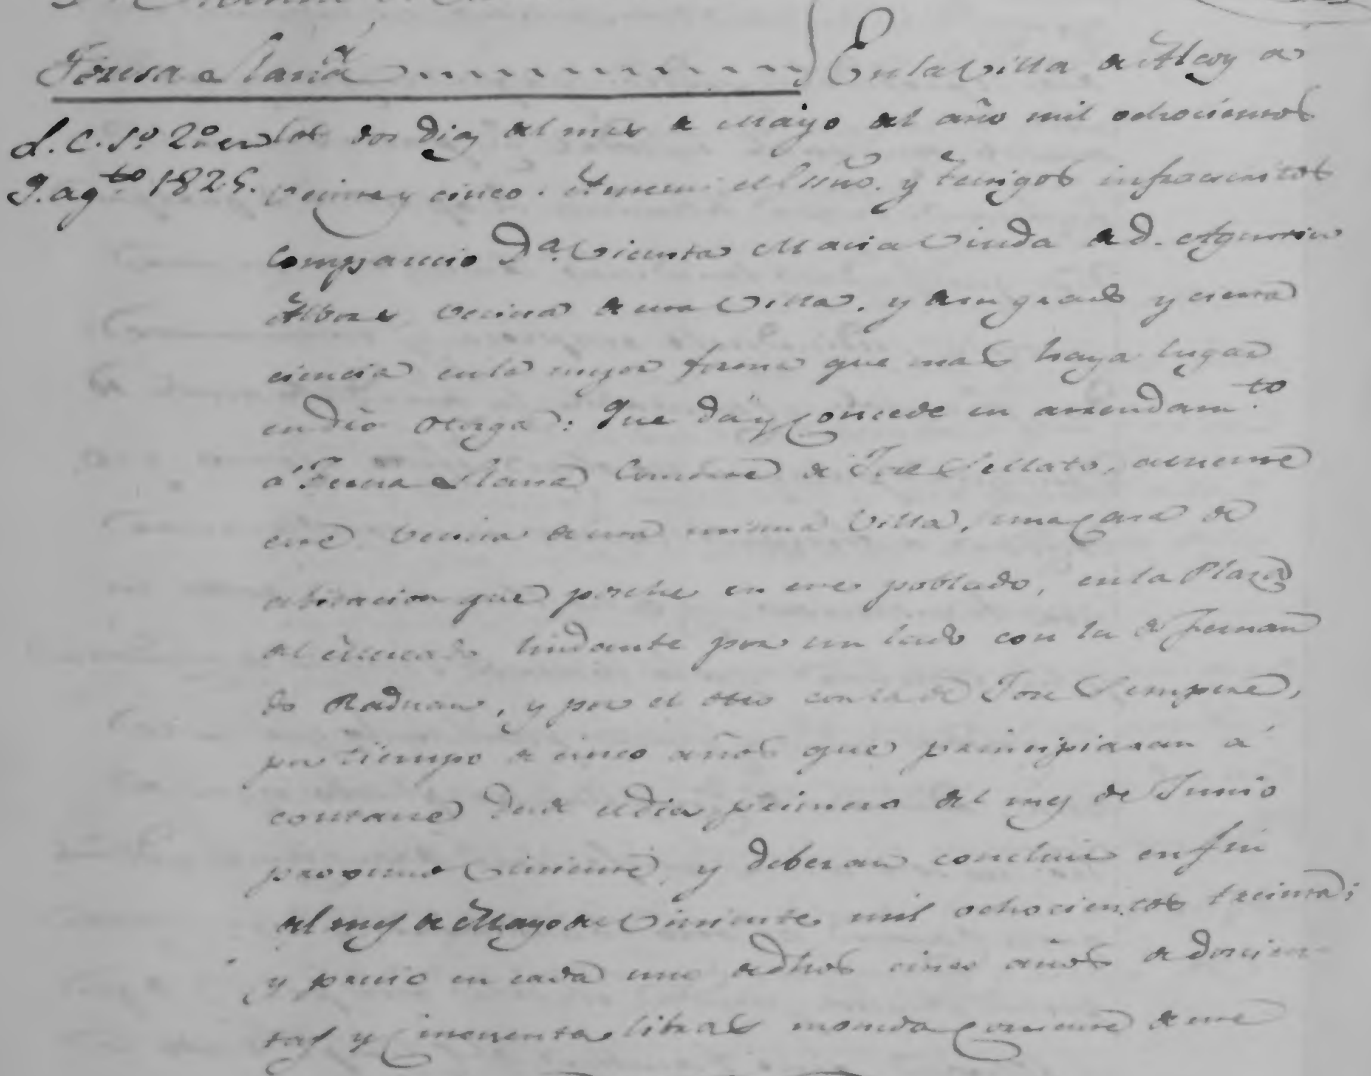 Teresa Llana
En la Villa de Alcoy a
L. C. S.º 2.º en los dos dias del mes de Mayo del año mil ochocientos
9. ag.to 1825. veinte y cinco. Antemi el Esño. y testigos infraescritos
comparecio D.ª Vicenta Maria Viuda de D. Agustin
Albors vecina de esta Villa, y de su grado y cierta
ciencia en la mejor forma que mas haya lugar
en dro otorga: Que da y concede en arrendam.to
á Teresa Llana Consorte de Jose Sellats, ausente
este vecina de esta misma Villa, una casa de
abitacion que posehe en este poblado, en la Plaza
del Mercado lindante por un lado con la de Fernan
do Raduan, y por el otro con la de Jose Sempere,
por tiempo de cinco años que principiaran á
contarse desde el dia primero del mes de Junio
proximo viniente, y deberan concluir en fin
del mes de Mayo de viniente mil ochocientos treinta;
y precio en cada uno de dhos cinco años de docien
tas y cincuenta libras moneda corriente de este